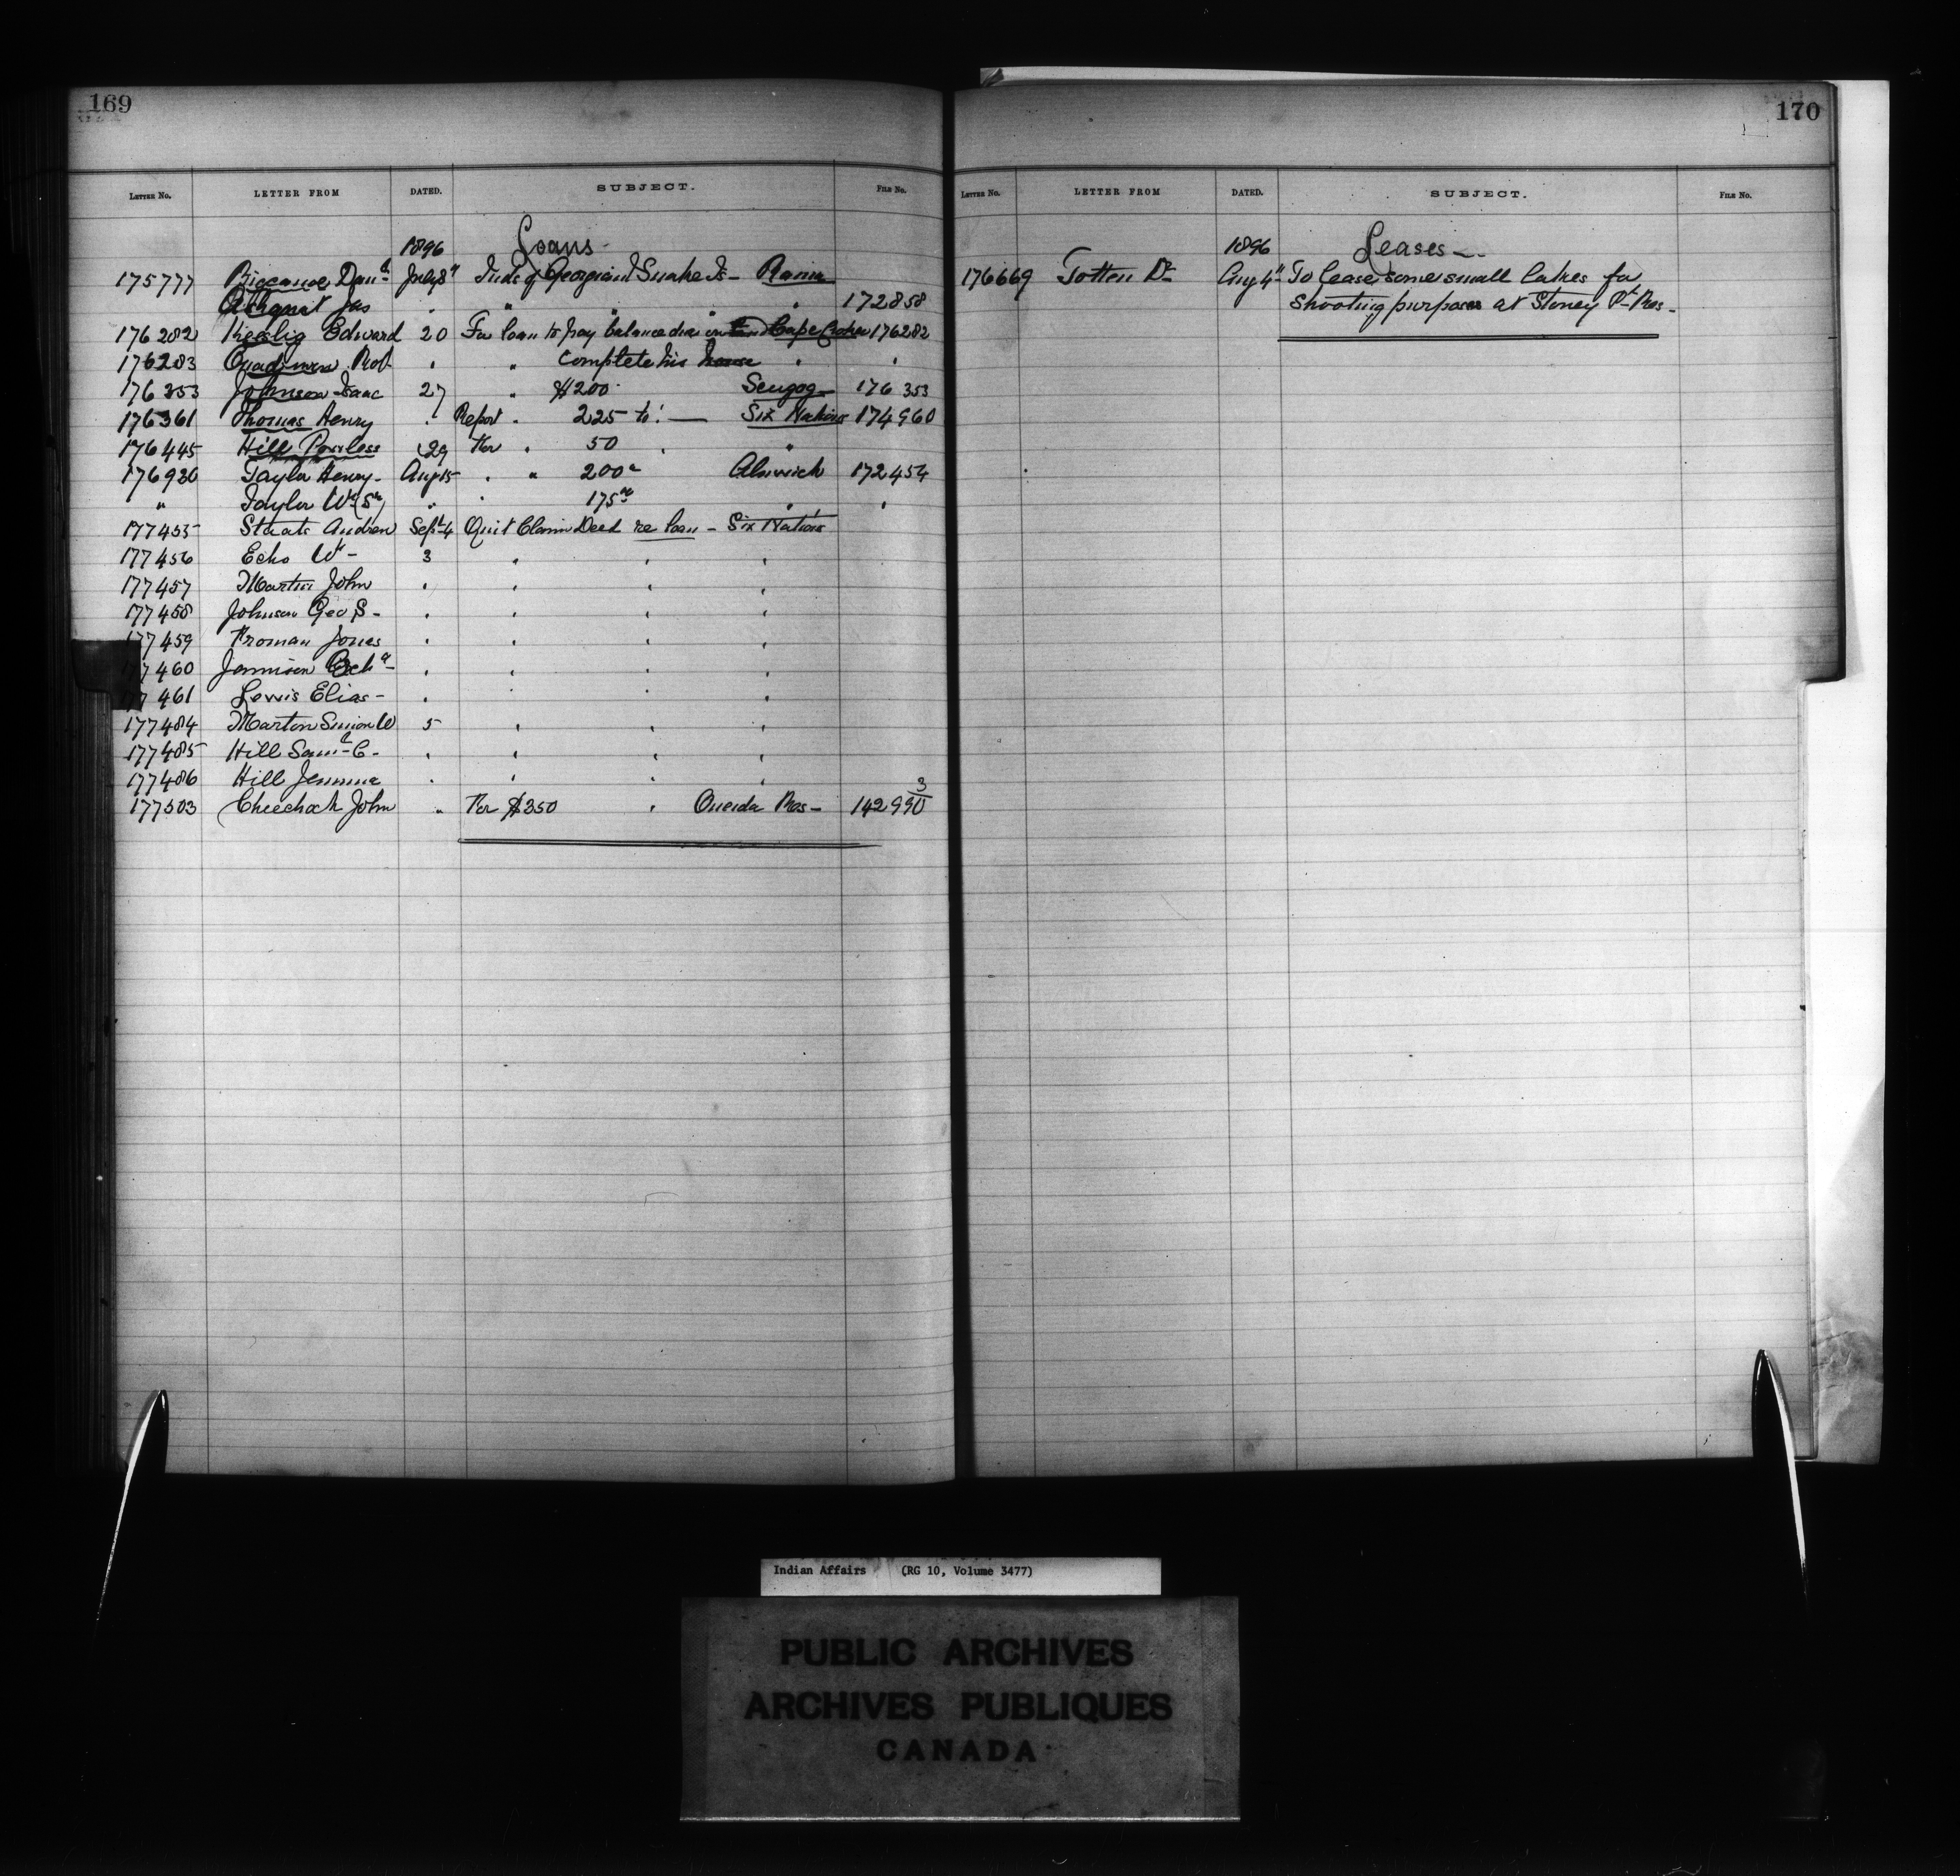 169
LETTER No. LETTER FROM DATED. SUBJECT. FILE No.
1896 Loans -
175777 Bigcanoe Danl July 8th Inds of Georgina & Snake Is - Rama
Ashquit Jas " " " " 172858
176282 Keeshig Edward 20 For loan to pay balance due on Cape Croker 176282
176283 Rob " " complete his house " "
176353 Johnson Isaac 27 " $200 Scugog 176353
176361 Thomas Henry " Report " 225 to - Six Nations 174960
176445 Hill Powless 29 For " 50 " "
176930 Taylor Henry - Aug 15 " " 200 Alnwick 172454
" Taylor Wm (Sr) " " 175 " "
177455 Staats Andrew Sept 4 Quit Claim Deed re loan - Six Nations
177456 Echo Wm - 3 " " "
177457 Martin John " " " "
177458 Johnson Geo S - " " " "
177459 Froman Jones " " " "
177460 Jamison " " " "
177461 Lewis Elias - " " " "
177484 Marton Simon W 5 " " "
177485 Hill Saml C - " " " "
177486 Hill Jemima " " " "
177503 Cheechock John " For $350 " Oneida Res - 142990 3
170
LETTER No. LETTER FROM DATED. SUBJECT. FILE No.
1896 Leases -
176669 Totten Dr Aug 4th To lease some small lakes for
shooting purposes at Stoney Pt Res -
Indian Affairs (RG 10, Volume 3477)
PUBLIC ARCHIVES
ARCHIVES PUBLIQUES
CANADA